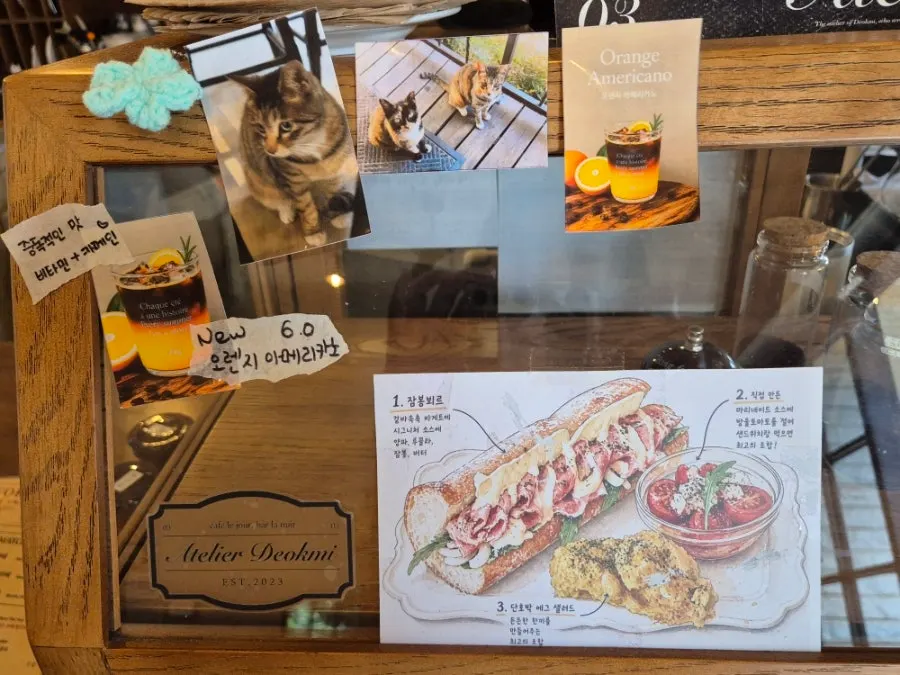 03
Orange
Americano
오렌지 아메리카노
중독적인 맛
비타민 + 카페인
Chaque été
a une histoire
New 6.0
오렌지 아메리카노
1. 잠봉뵈르
겉바속촉 바게트에
시그니처 소스에
양파, 루꼴라,
잠봉, 버터
2. 직접 만든
마리네이드 소스에
방울토마토를 절여
샌드위치랑 먹으면
최고의 조합!
3. 단호박 에그 샐러드
든든한 한끼를
만들어주는
최고의 조합
cafe le jour, bar la nuit
Atelier Deokmi
EST, 2023